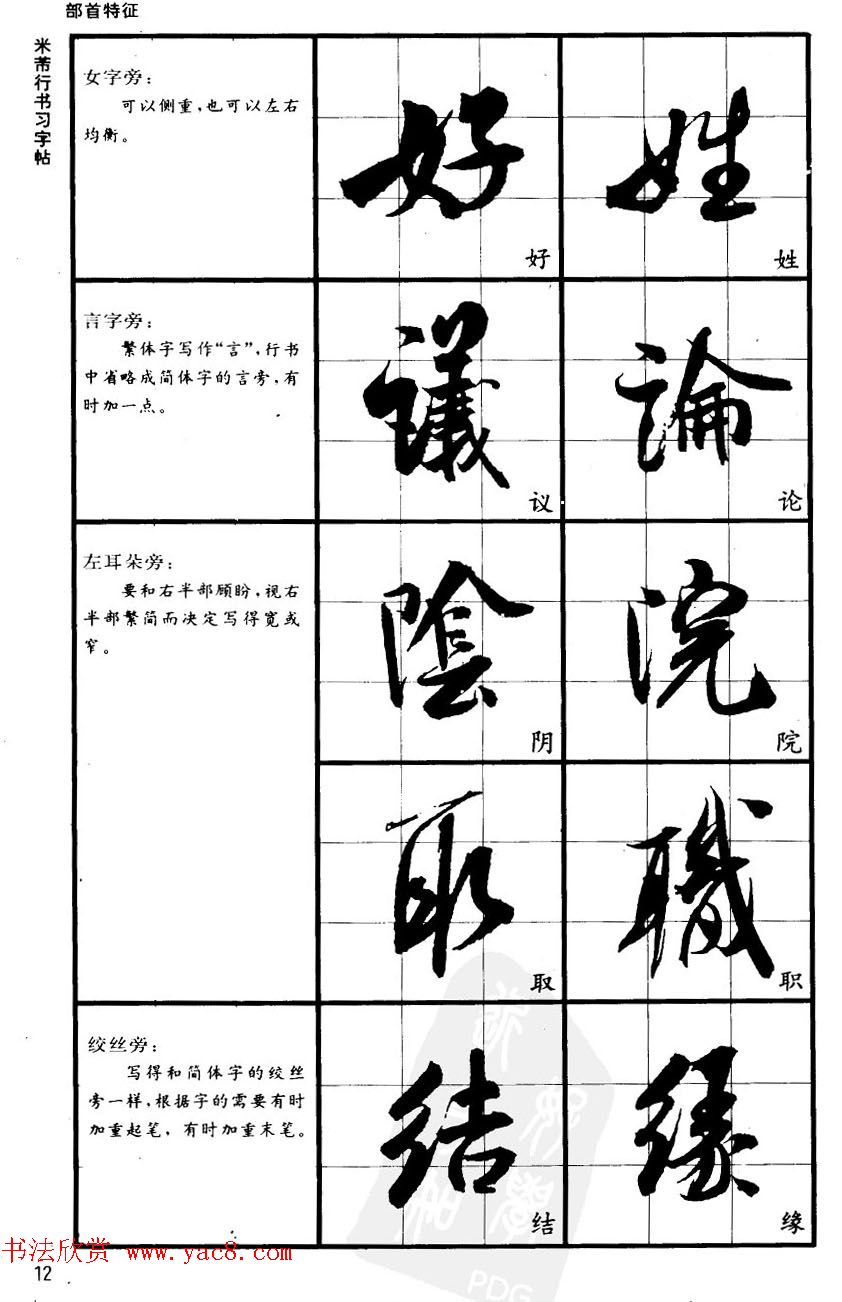 部首特征
米芾行书习字帖
女字旁：
可以侧重，也可以左右
均衡。
好
姓
好
姓
言字旁：
繁体字写作“言”，行书
中省略成简体字的言旁，有
时加一点。
議
論
议
论
左耳朵旁：
要和右半部顾盼，视右
半部繁简而决定写得宽或
窄。
陰
院
阴
院
取
職
取
职
绞丝旁：
写得和简体字的绞丝
旁一样，根据字的需要有时
加重起笔，有时加重末笔。
结
缘
结
缘
书法欣赏 www.yac8.com
12
PDG